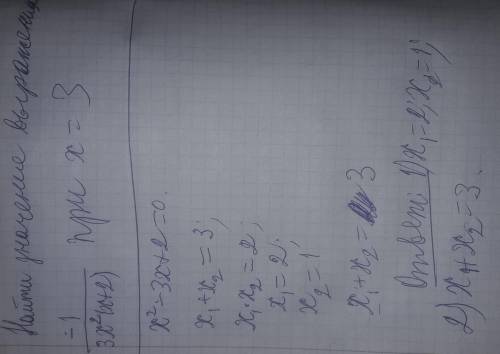 Найти значение выражения
-1
3x²(x+2)
при x = 3
x²-3x+2=0.
x₁+x₂=3;
x₁·x₂=2;
x₁=2;
x₂=1
x₁+x₂= 3
Ответ: 1) x₁=2; x₂=1;
2) x₁+x₂=3.